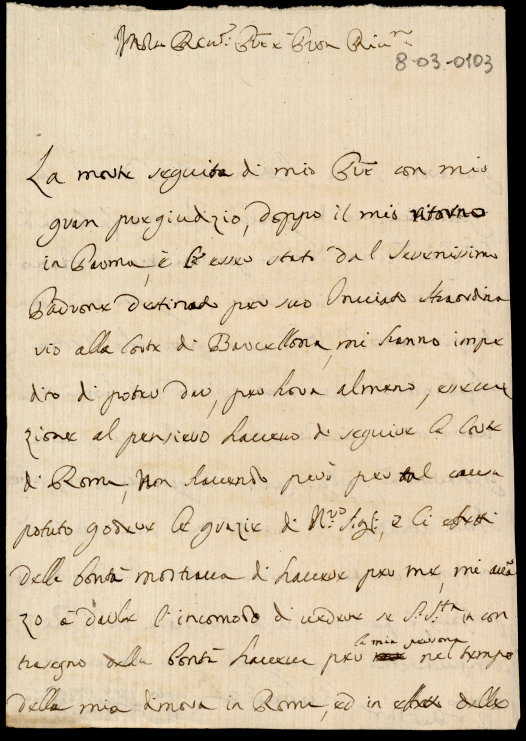 Molto Rev.: P̃re e Pron Riv.mo
8-03-0103
La morte seguita di mio P̃re con mio
gran pregiudizio, doppo il mio ritorno
in Parma, e l'esser stato dal Serenissimo
Padrone destinato per suo Inviato Straordina
rio alla Corte di Barcellona, mi hanno impe
dito di poter dar, per hora almeno, essecu
zione al pensiero havevo di seguire la Corte
di Roma, Non havendo però per tal causa
potuto godere le grazie di N.ro Sig.:, e li effetti
della bontà mostrava di havere per me, mi avã
zo à darle l'incomodo di vedere se S. S.tà in con
trasegno della bontà haveva per la mia persona nel tempo
della mia dimora in Roma, ed in effetto delle